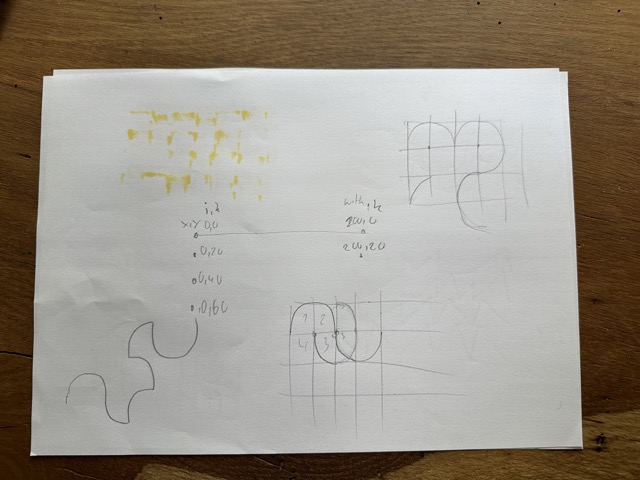 i,2
x,y 0,0
0,20
0,40
0,60
200,0
200,20
1 2
4 3